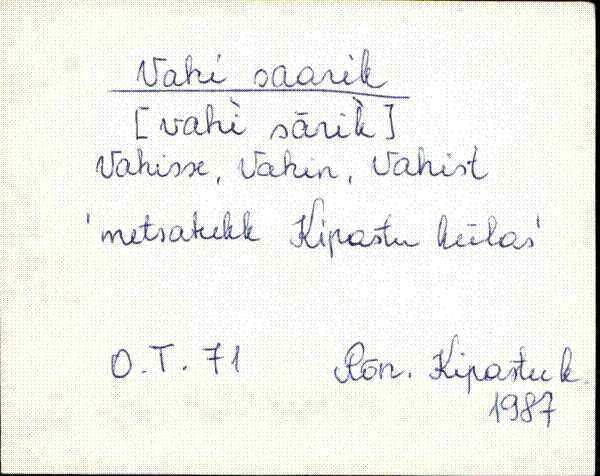 Vahi saarik
[vahì sārìk]
Vahisse, Vahin, Vahist
'metsatukk Kipastu külas'
O.T. 71 Rõn. Kipastu k.
1987